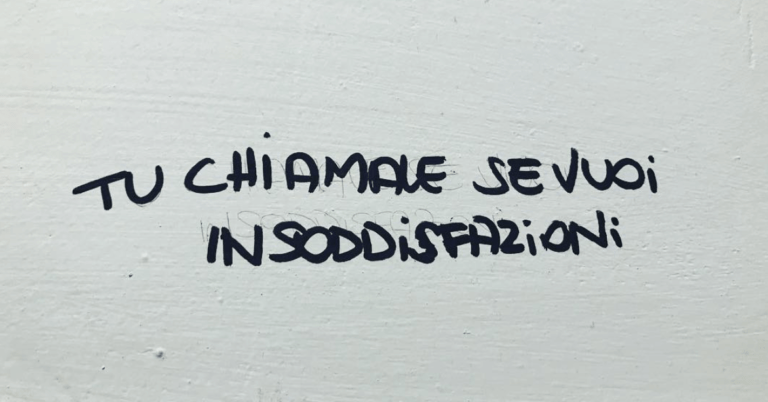 TU CHiAMALE SE VUOi
INSODDiSFAZiONi